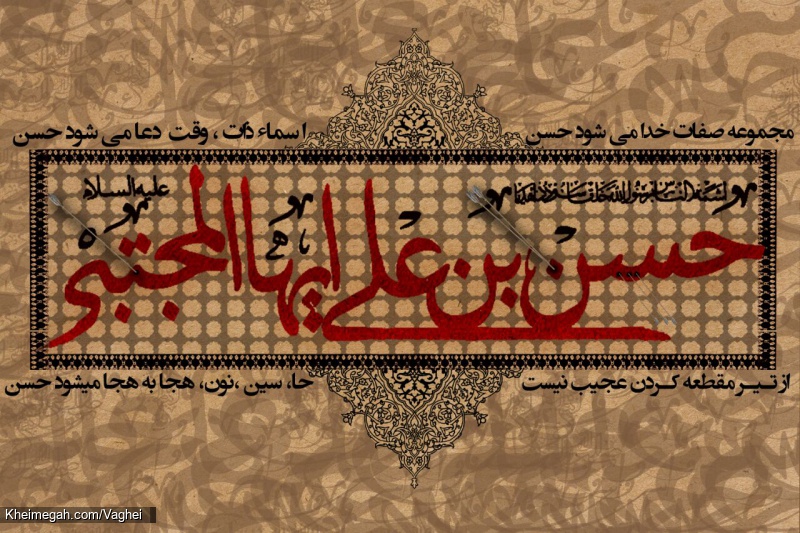 مجموعه صفات خدا می شود حسن
اسماء ذات ، وقت دعا می شود حسن
علیه السلام
حسن بن علی ایها المجتبی
از تـیـر مقطعه کـردن عجیب نیست
حا، سین ،نون، هجا به هجا میشود حسن
Kheimegah.com/Vaghei